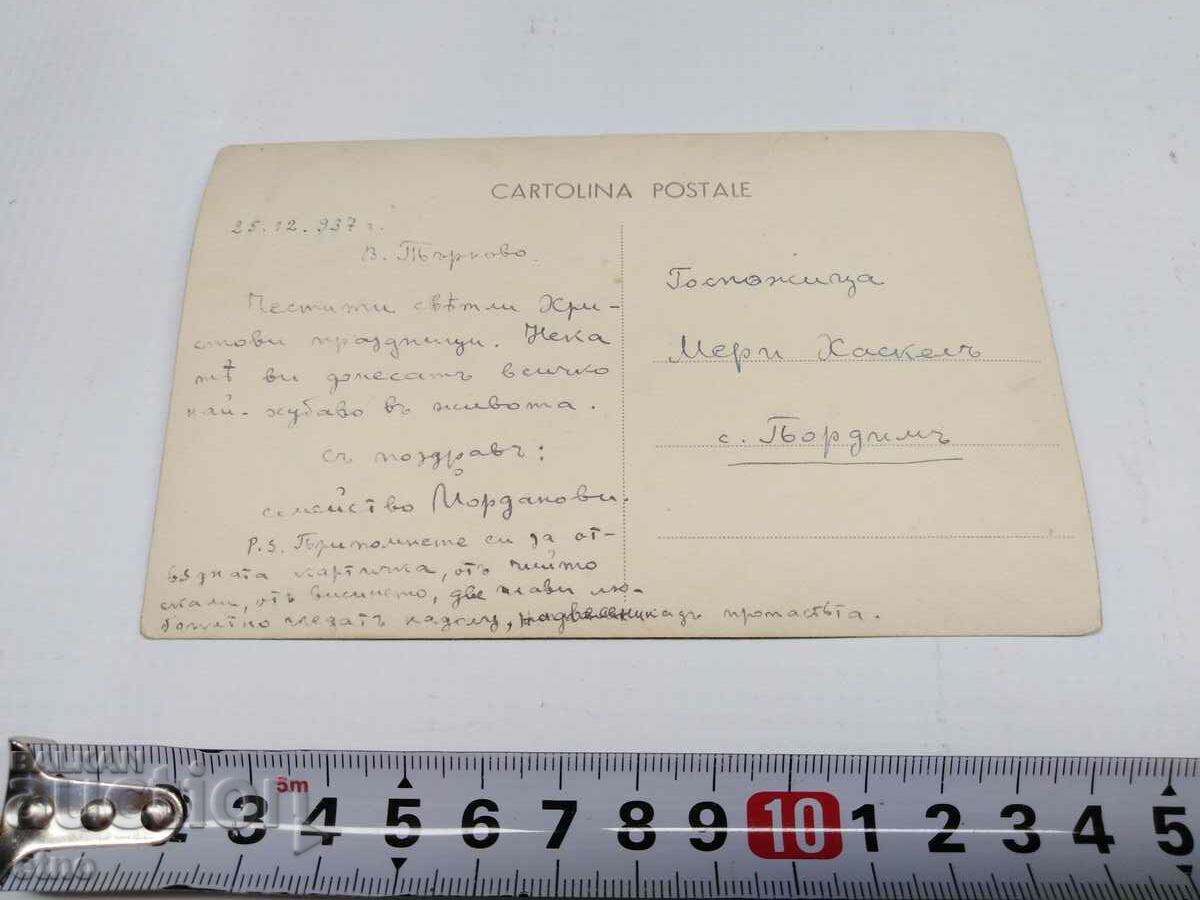 CARTOLINA POSTALE
25.12.937 г.
В. Търново.
Честити свѣтли Хри-
стови праздници. Нека
тѣ ви донесатъ всичко
най-хубаво въ живота.
съ поздравъ:
семейство Йорданови.
P.S. Припомнете си за от-
въдната картичка, отъ чиито
скали, отъ високо, две глави лю-
бопитно гледатъ надолу, надъ пропастьта.
Госпожица
Мери Хаскелъ
с. Пордимъ
BALKAN
auction
etno
2 3 5m 4 5 6 7 8 9 10 1 2 3 4 5